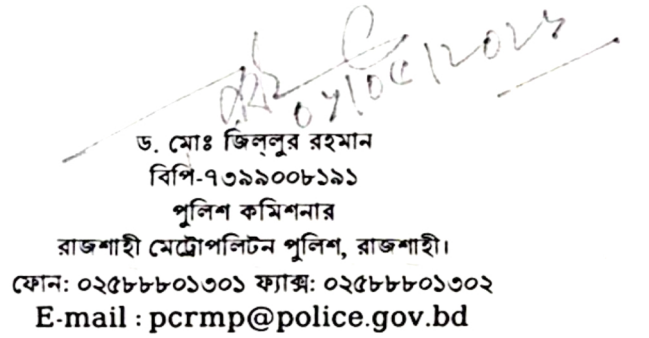 ড. মোঃ জিল্লুর রহমান
বিপি-৭৩৯৯০০৮১৯১
পুলিশ কমিশনার
রাজশাহী মেট্রোপলিটন পুলিশ, রাজশাহী।
ফোন: ০২৫৮৮৮০১৩০১ ফ্যাক্স: ০২৫৮৮৮০১৩০২
E-mail : pcrmp@police.gov.bd